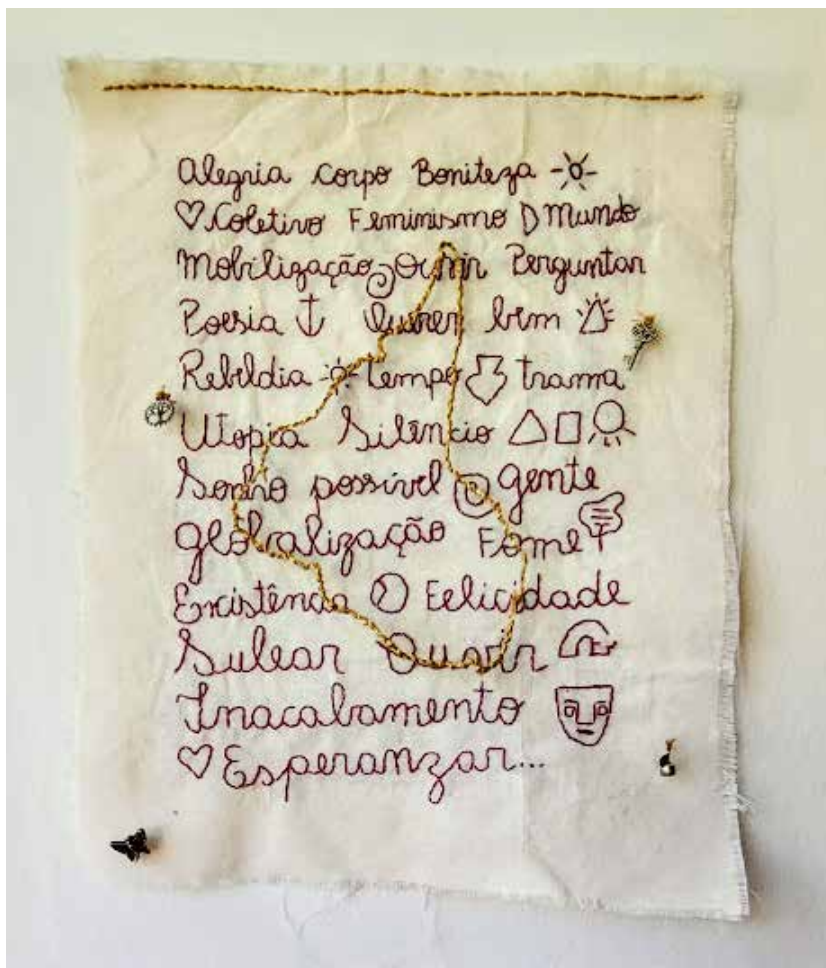 Alegria Corpo Boniteza
Coletivo Feminismo Mundo
Mobilização Ouvir Perguntar
Poesia Querer bem
Rebeldia tempo trama
Utopia Silêncio
Sonho possível gente
globalização Fome
Existência Felicidade
Sulear Ouvir
Inacabamento
Esperanzar...